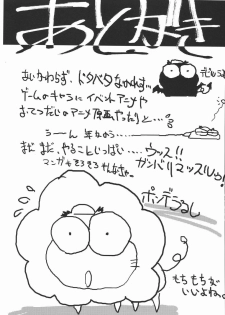 あとがき
あいかわらず、ドタバタなかれす…
ゲームのキャラに イベントアニメや
おてつだいのアニメ原画やったりと……
うーん 年ながら……
まだまだ、やることいっぱい…… ウッス!!
ガンバリマッスルゥ!
マンガもそろそろ
ポンデうるし
もちもちが
いいよね。